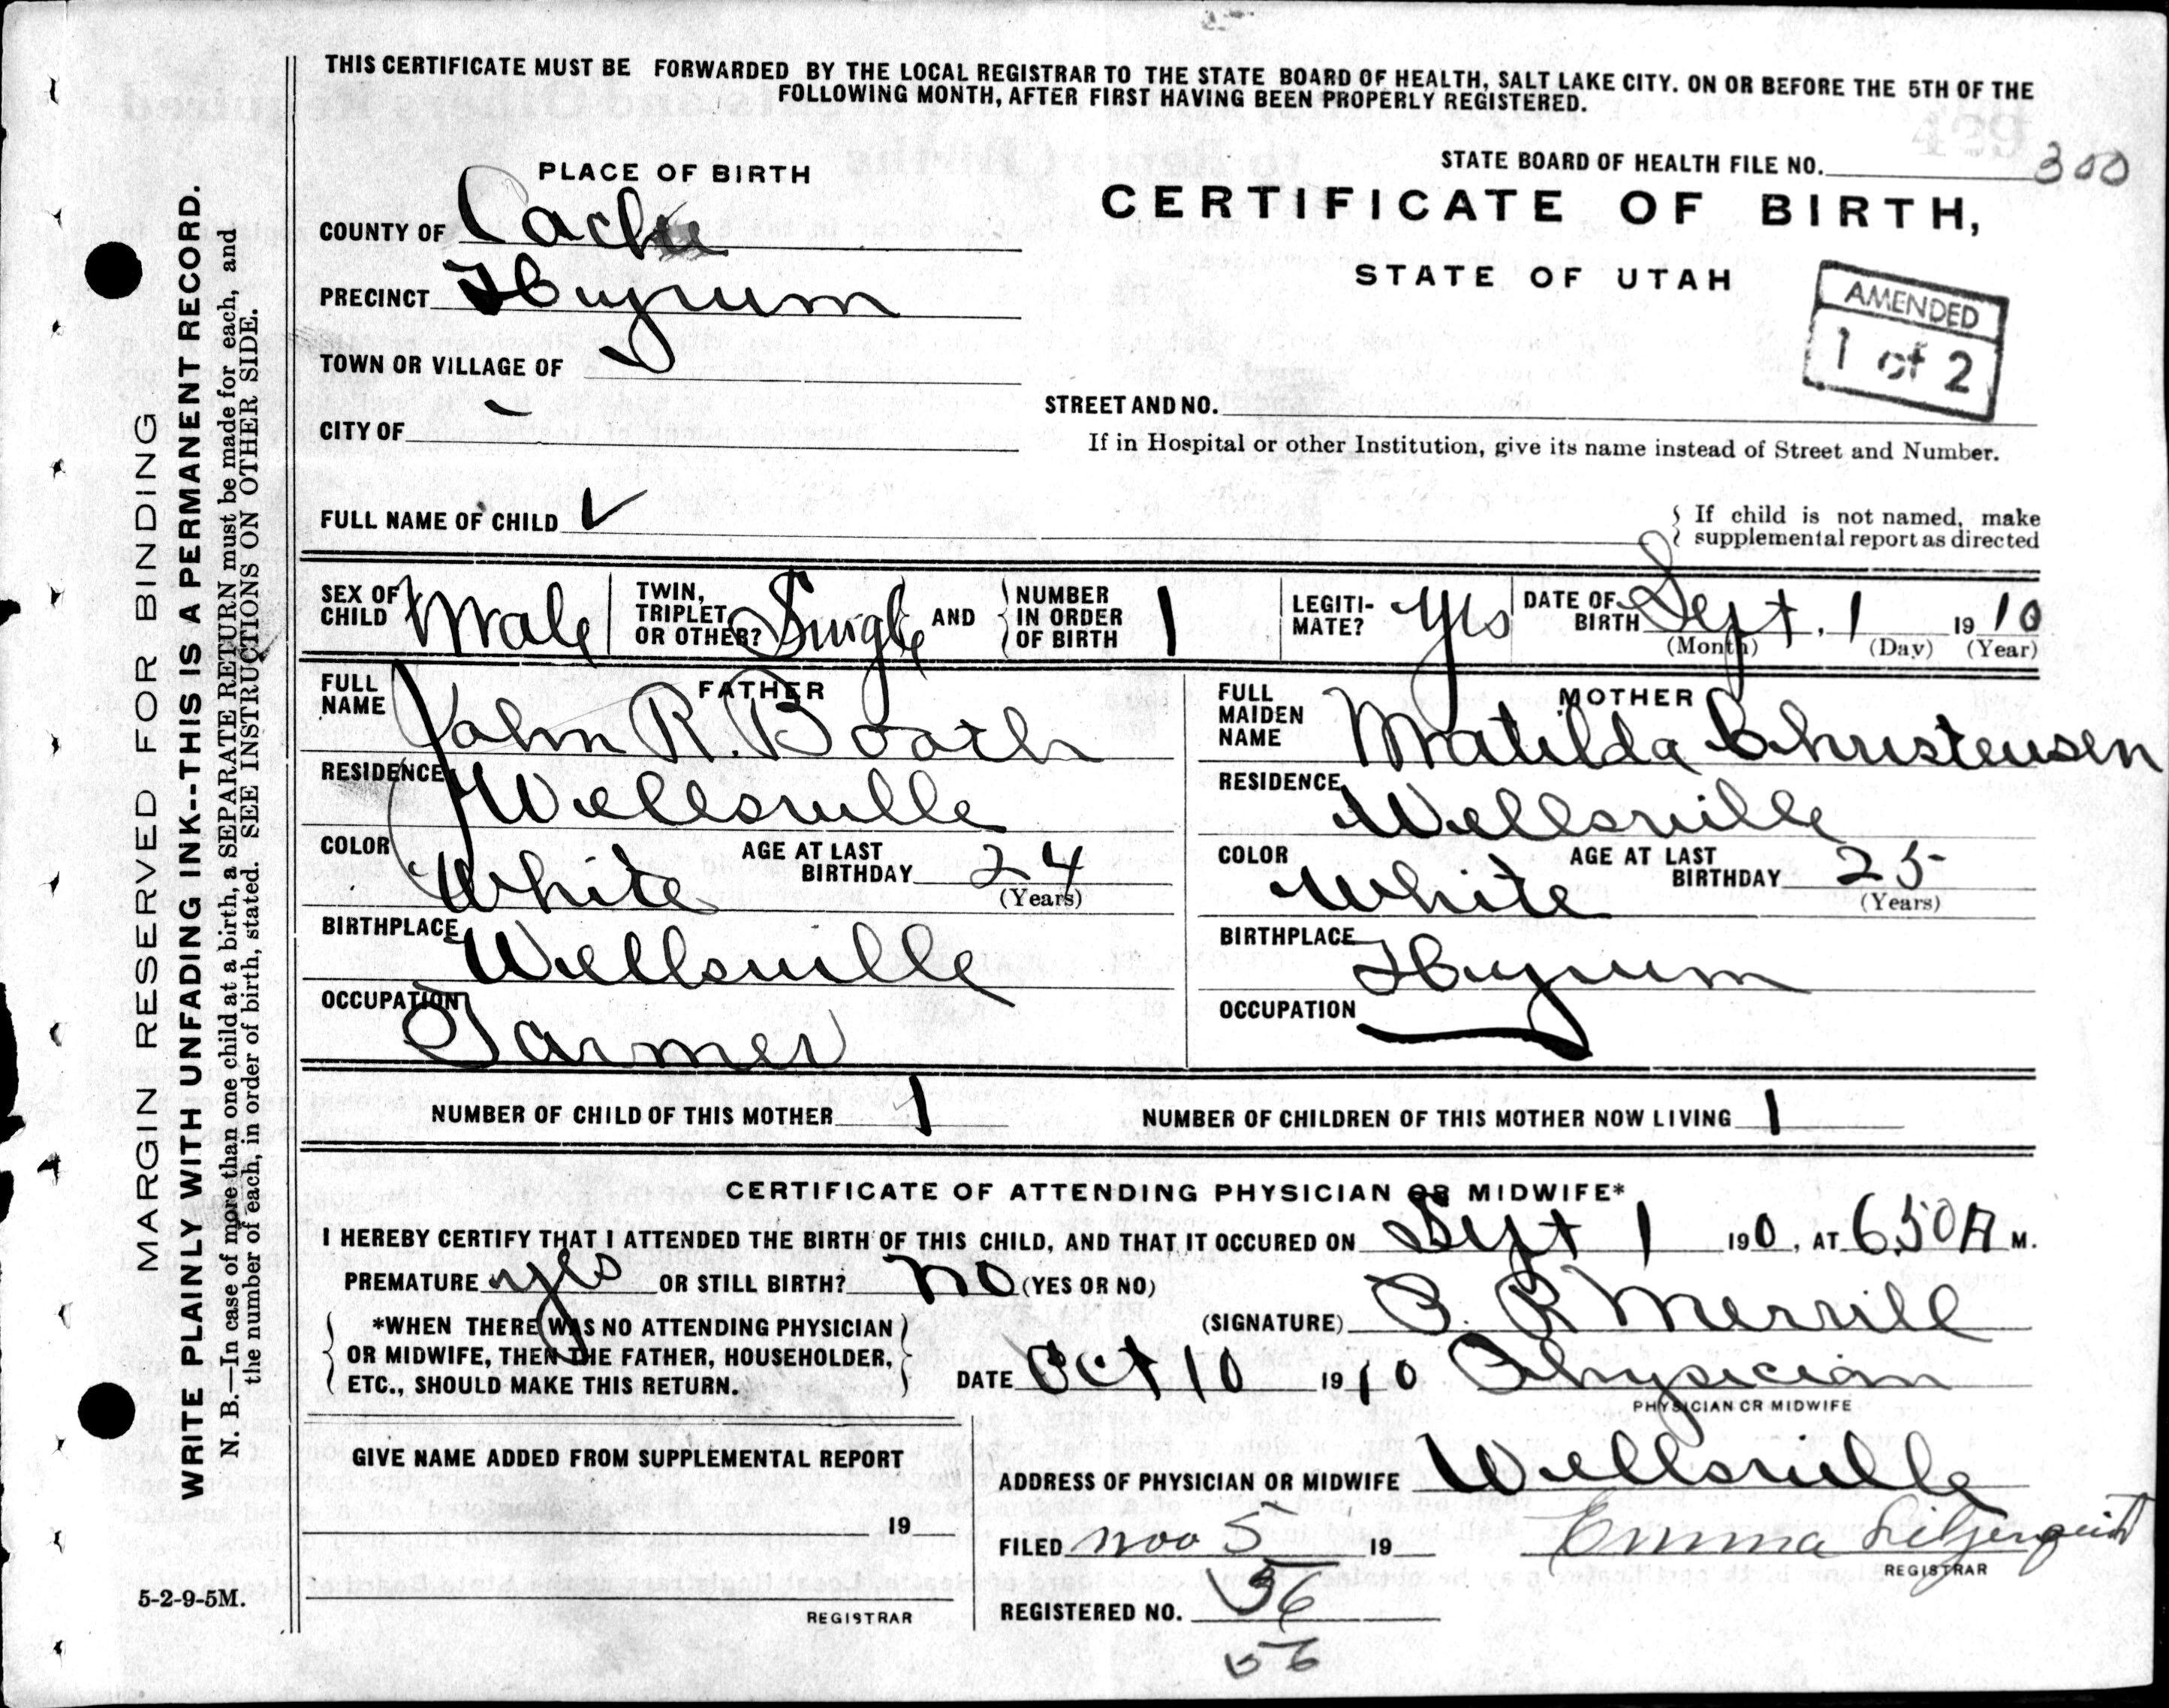 THIS CERTIFICATE MUST BE FORWARDED BY THE LOCAL REGISTRAR TO THE STATE BOARD OF HEALTH, SALT LAKE CITY. ON OR BEFORE THE 5TH OF THE
FOLLOWING MONTH, AFTER FIRST HAVING BEEN PROPERLY REGISTERED.
STATE BOARD OF HEALTH FILE NO. 300
PLACE OF BIRTH
CERTIFICATE OF BIRTH,
STATE OF UTAH
COUNTY OF Cache
PRECINCT Hyrum
TOWN OR VILLAGE OF
CITY OF
AMENDED
1 of 2
STREET AND NO.
If in Hospital or other Institution, give its name instead of Street and Number.
FULL NAME OF CHILD ✓
If child is not named, make
supplemental report as directed
SEX OF CHILD Male
TWIN, TRIPLET OR OTHER? Single AND NUMBER IN ORDER OF BIRTH 1
LEGITIMATE? Yes
DATE OF BIRTH Sept. 1 1910
(Month) (Day) (Year)
FATHER
FULL NAME John R. Booth
RESIDENCE Wellsville
COLOR White AGE AT LAST BIRTHDAY 24
(Years)
BIRTHPLACE Wellsville
OCCUPATION Farmer
MOTHER
FULL MAIDEN NAME Matilda Christensen
RESIDENCE Wellsville
COLOR White AGE AT LAST BIRTHDAY 25
(Years)
BIRTHPLACE Hyrum
OCCUPATION
NUMBER OF CHILD OF THIS MOTHER 1 NUMBER OF CHILDREN OF THIS MOTHER NOW LIVING 1
CERTIFICATE OF ATTENDING PHYSICIAN OR MIDWIFE*
I HEREBY CERTIFY THAT I ATTENDED THE BIRTH OF THIS CHILD, AND THAT IT OCCURED ON Sept 1 190, AT 6.50 A M.
PREMATURE yes OR STILL BIRTH? no (YES OR NO)
*WHEN THERE WAS NO ATTENDING PHYSICIAN
OR MIDWIFE, THEN THE FATHER, HOUSEHOLDER,
ETC., SHOULD MAKE THIS RETURN.
(SIGNATURE) P. R Merrill
DATE Oct 10 1910 Physician
PHYSICIAN OR MIDWIFE
GIVE NAME ADDED FROM SUPPLEMENTAL REPORT
19
REGISTRAR
ADDRESS OF PHYSICIAN OR MIDWIFE Wellsville
FILED Nov 5 19 Emma Liljenquist
REGISTRAR
REGISTERED NO. 56
56
MARGIN RESERVED FOR BINDING
WRITE PLAINLY WITH UNFADING INK--THIS IS A PERMANENT RECORD.
N. B.—In case of more than one child at a birth, a SEPARATE RETURN must be made for each, and
the number of each, in order of birth, stated. SEE INSTRUCTIONS ON OTHER SIDE.
5-2-9-5M.